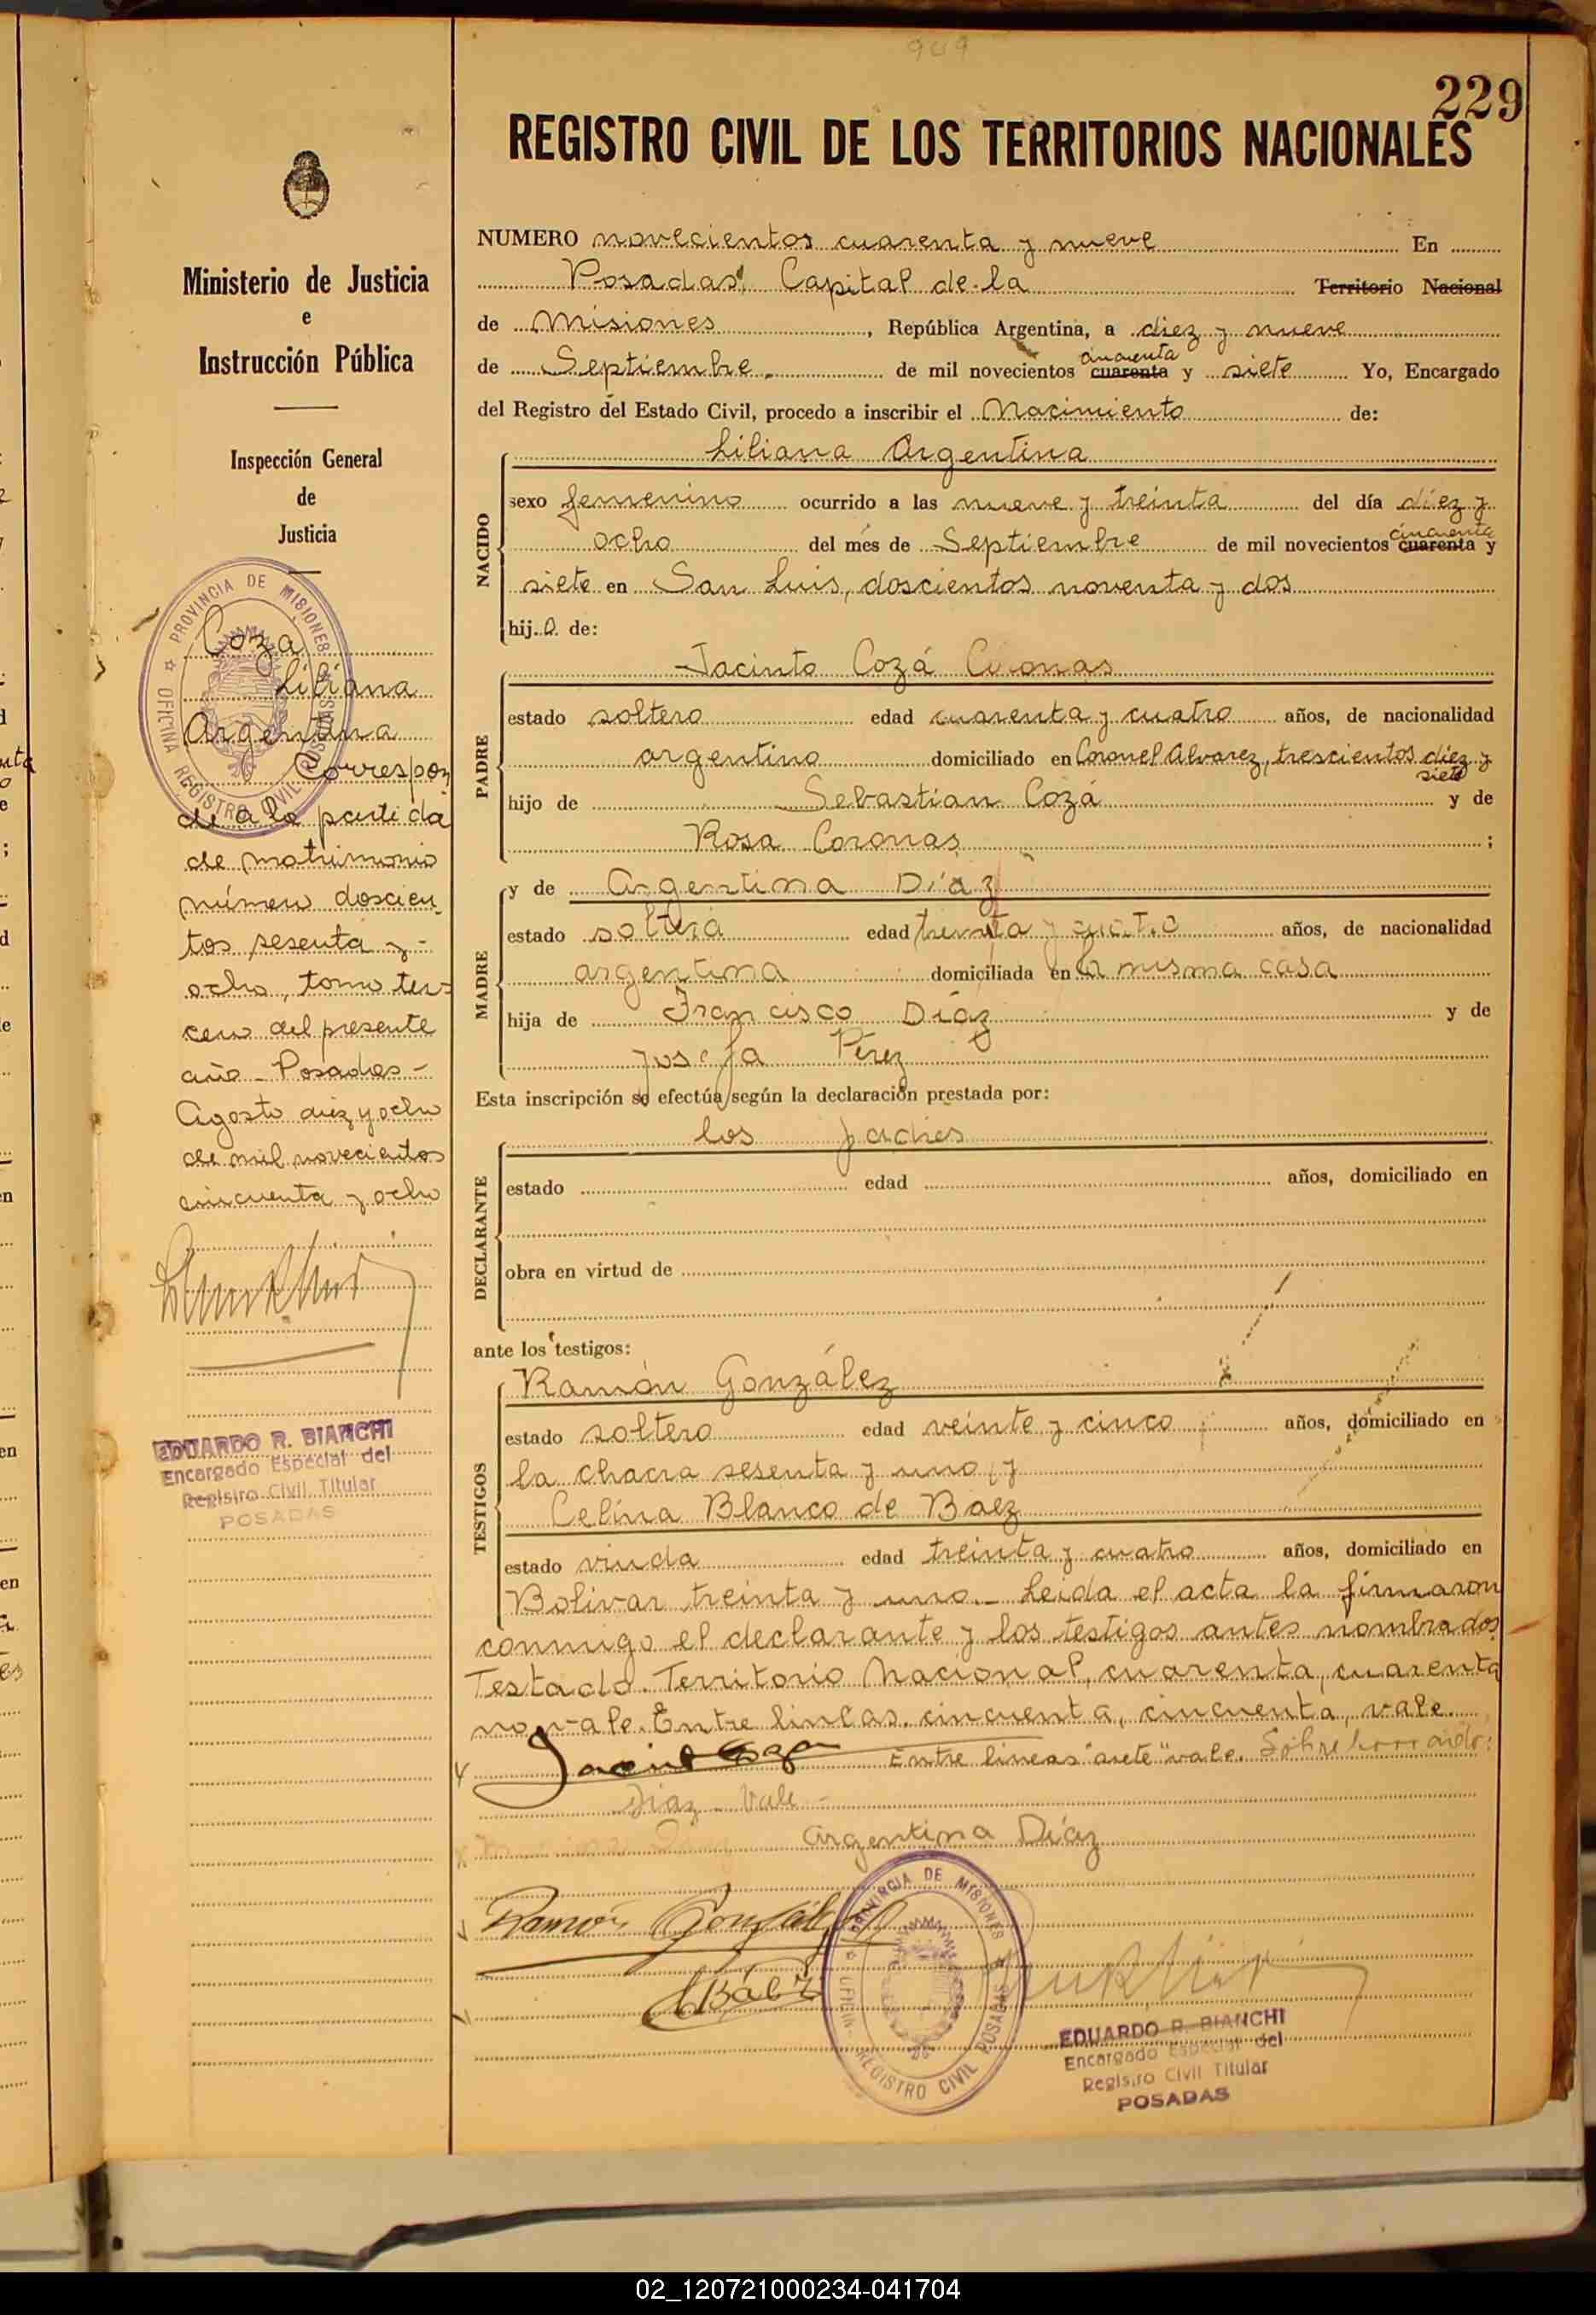 909
229
REGISTRO CIVIL DE LOS TERRITORIOS NACIONALES
Ministerio de Justicia
e
Instrucción Pública
Inspección General
de
Justicia
PROVINCIA DE MISIONES
OFICINA REGISTRO CIVIL POSADAS
Coza
Liliana
Argentina
Correspon
de a la partida
de matrimonio
número doscien
tos sesenta y -
ocho, tomo ter-
cero del presente
año - Posadas -
Agosto diez y ocho
de mil novecientos
cincuenta y ocho
EDUARDO R. BIANCHI
Encargado Especial del
Registro Civil Titular
POSADAS
NUMERO novecientos cuarenta y nueve En
Posadas, Capital de la Territorio Nacional
de Misiones, República Argentina, a diez y nueve
cincuenta
de Septiembre de mil novecientos cuarenta y siete Yo, Encargado
del Registro del Estado Civil, procedo a inscribir el Nacimiento de:
NACIDO
Liliana Argentina
sexo femenino ocurrido a las nueve y treinta del día diez y
cincuenta
ocho del mes de Septiembre de mil novecientos cuarenta y
siete en San Luis, doscientos noventa y dos
hij.a de:
PADRE
Jacinto Cozá Coronas
estado soltero edad cuarenta y cuatro años, de nacionalidad
argentino domiciliado en Coronel Alvarez, trescientos diez y
siete
hijo de Sebastián Cozá y de
Rosa Coronas ;
MADRE
y de Argentina Díaz
estado soltera edad treinta y cuatro años, de nacionalidad
argentina domiciliada en la misma casa
hija de Francisco Díaz y de
Josefa Pérez
Esta inscripción se efectúa según la declaración prestada por:
DECLARANTE
los padres
estado edad años, domiciliado en
obra en virtud de
ante los testigos:
TESTIGOS
Ramón González
estado soltero edad veinte y cinco años, domiciliado en
la chacra sesenta y uno, y
Celina Blanco de Baez
estado viuda edad treinta y cuatro años, domiciliado en
Bolivar treinta y uno.- Leida el acta la firmaron
conmigo el declarante y los testigos antes nombrados
Testado. Territorio Nacional, cuarenta, cuarenta
no vale. Entre lineas. cincuenta, cincuenta, vale.
Entre lineas "siete" vale. Sobre borrado:
Diaz - Vale -
Argentina Díaz
Ramón González
PROVINCIA DE MISIONES
OFICINA REGISTRO CIVIL POSADAS
EDUARDO R. BIANCHI
Encargado Especial del
Registro Civil Titular
POSADAS
02_120721000234-041704